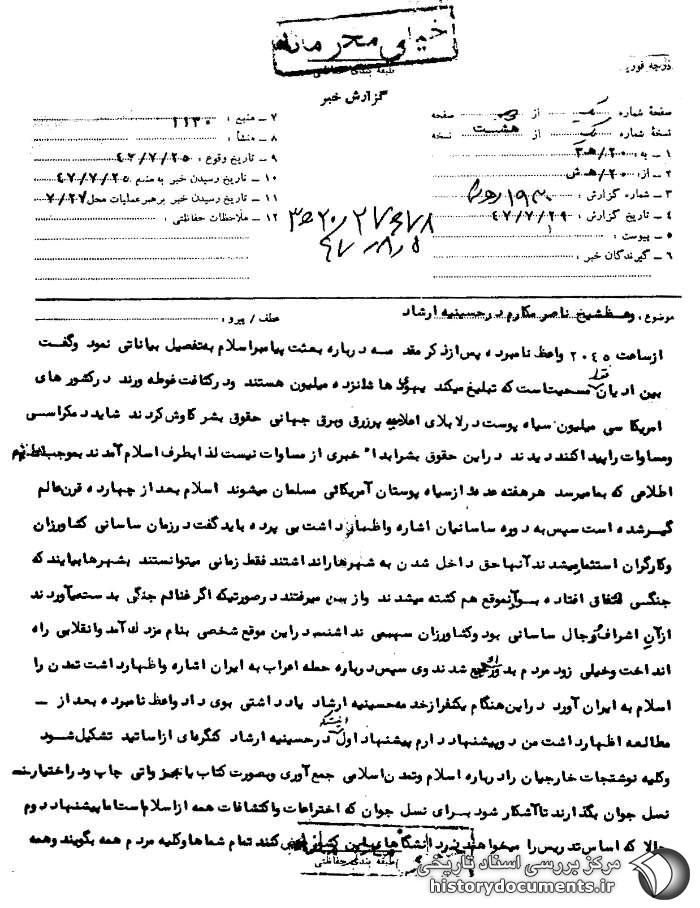 خیلی محرمانه
طبقه بندی حفاظتی
درجه فوریت
گزارش خبر
صفحه شماره یک از صفحه
نسخه شماره یک از هشت نسخه
۱ – به : ۲۰/ه‍ ۳
۲ – از : ۲۰/ه‍ ش
۳ – شماره گزارش :
۴ – تاریخ گزارش : ۴۷/۷/۲۹
۵ – پیوست :
۶ – گیرندگان خبر :
۷ – منبع : ۱۱۳۰
۸ – منشأ :
۹ – تاریخ وقوع : ۴۷/۷/۲۵
۱۰ – تاریخ رسیدن خبر به منبع ۴۷/۷/۲۵
۱۱ – تاریخ رسیدن خبر برهبر عملیات محل ۷/۲۷
۱۲ – ملاحظات حفاظتی :
موضوع : وعظ شیخ ناصر مکارم در حسینیه ارشاد
عطف / پیرو :
از ساعت ۲۰۴۵ واعظ نامبرده پس از ذکر مقدمه درباره بعثت پیامبر اسلام به تفصیل بیاناتی نمود وگفت
بین ادیان فقط مسحیت است که تبلیغ میکند یهودیها شانزده میلیون هستند ودرکثافت غوطه ورند درکشورهای
امریکا سی میلیون سیاه پوست در لابلای اعلامیه پرزرق وبرق جهانی حقوق بشر کاوش کردند شاید دمکراسی
ومساوات را پیدا کنند دیدند در این حقوق بشر ابداً خبری از مساوات نیست لذا بطرف اسلام آمدند بموجب
اطلاعی که بما میرسد هر هفته عده از سیاه پوستان آمریکائی مسلمان میشوند اسلام بعد از چهارده قرن عالم
گیر شده است سپس به دوره ساسانیان اشاره واظهار داشت بی پرده باید گفت در زمان ساسانی کشاورزان
وکارگران استثمار میشدند آنها حق داخل شدن به شهرها را نداشتند فقط زمانی میتوانستند بشهرها بیایند که
جنگی اتفاق افتاده و آنموقع هم کشته میشدند واز بین میرفتند درصورتیکه اگر غنائم جنگی بدست میآوردند
از آن اشراف و رجال ساسانی بود وکشاورزان سهمی نداشتند در این موقع شخصی بنام مزدک آمد وانقلابی راه
انداخت وخیلی زود مردم بدور او جمع شدند وی سپس درباره حمله اعراب به ایران اشاره واظهار داشت تمدن را
اسلام به ایران آورد در این هنگام یکنفر از خدمه حسینیه ارشاد یادداشتی بوی داد واعظ نامبرده بعد از –
مطالعه اظهار داشت من دو پیشنهاد دارم پیشنهاد اول اینستکه در حسینیه ارشاد کنگره‌ای از اساتید تشکیل شود
وکلیه نوشتجات خارجیان را درباره اسلام وتمدن اسلامی جمع آوری وبصورت کتاب یا چیز وانی چاپ ودر اختیار
نسل جوان بگذارند تا آشکار شود برای نسل جوان که اختراعات واکتشافات همه از اسلام است اما پیشنهاد دوم
حالا که اساس تدریس را میخواهند در دانشگاههای این کشور کنند تمام شماها وکلیه مردم همه بگویند وهمه
طبقه بندی حفاظتی
مرکز بررسی اسناد تاریخی
historydocuments.ir